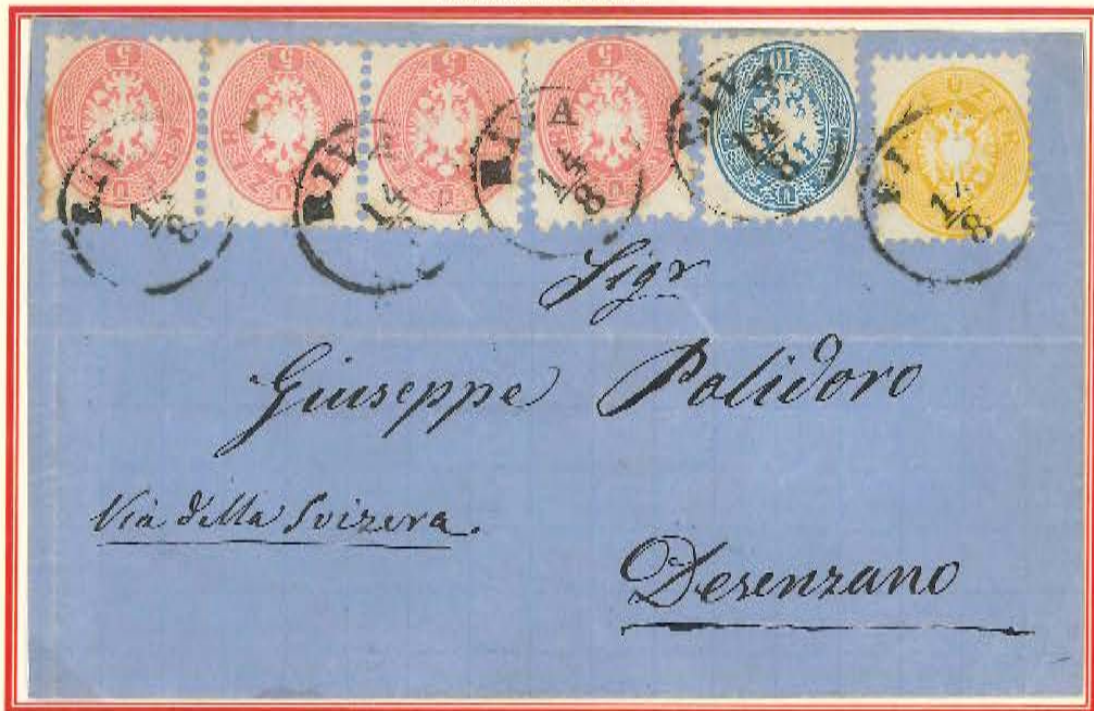 5 5 5 5 10
RIVA 14/8 RIVA 14/8 RIVA 14/8 RIVA 14/8 RIVA 14/8
Sigr
Giuseppe Polidoro
Via della Svizera.
Desenzano